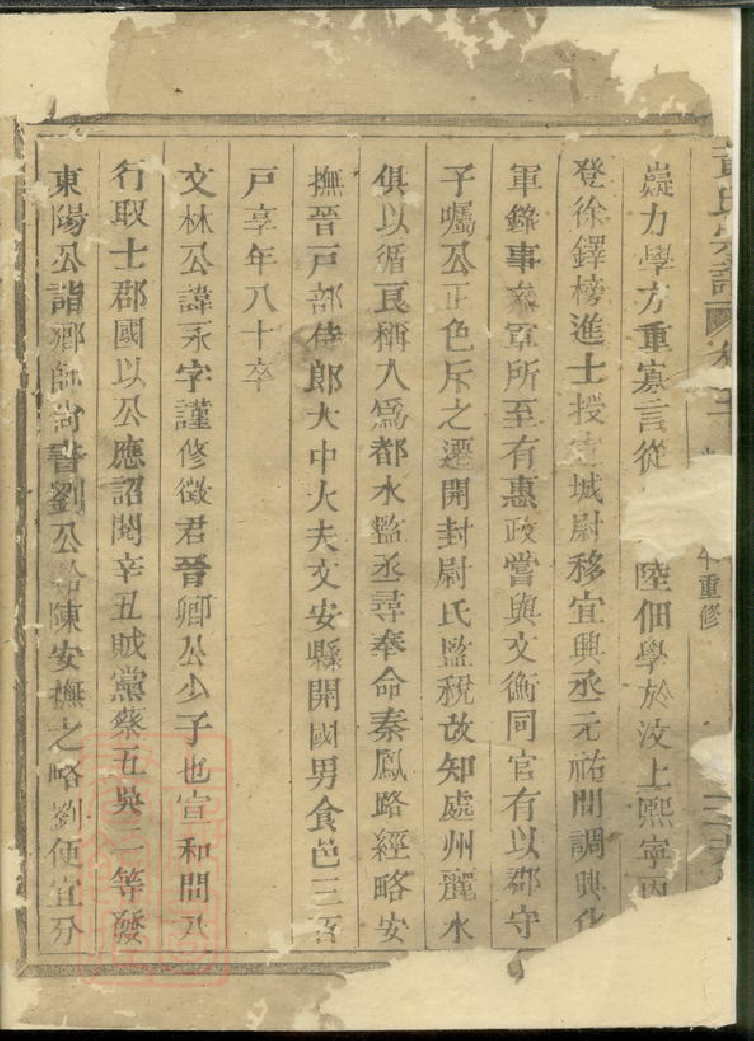 嶷力學方重寡言從陸佃學於汶上熙寧丙
登徐鐸榜進士授城尉移宜興丞元祐間調興化
軍錄事叅軍所至有惠政嘗與文衡同官有以郡守
子囑公正色斥之遷開封尉氏監稅改知處州麗水
俱以循良稱入爲都水監丞尋奉命秦鳳路經略安
撫晉戸部侍郎大中大夫文安縣開國男食邑三百
戸享年八十卒
文林公諱永字謹修徵君晉卿公少子也宣和間八
行取士郡國以公應詔閱辛丑賊黨蔡五吳二等發
東陽公詣鄉師尚書劉公韐陳安撫之略劉便宜分
氏宗譜
重修